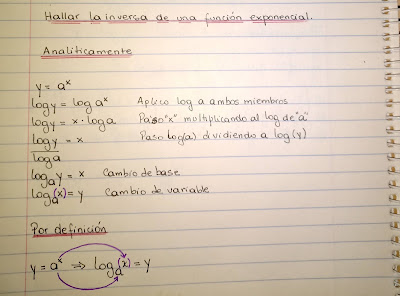 Hallar la inversa de una función exponencial.
Analíticamente
y = aˣ
log y = log aˣ Aplico log a ambos miembros
log y = x · log a Paso "x" multiplicando al log de "a"
log y = x Paso log(a) dividiendo a log(y)
log a
logₐ y = x Cambio de base
logₐ(x) = y Cambio de variable
Por definición
y = aˣ ⇒ logₐ(x) = y